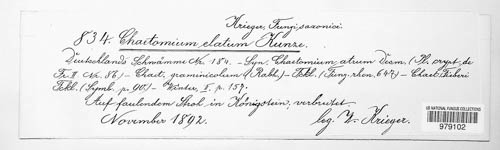 Krieger, Fungi saxonici.
834. Chaetomium elatum Kunze.
Deutschlands Schwämme Nr. 184. – Syn. Chaetomium atrum Desm. (Pl. crypt. de
Fr. II Nr. 86.) – Chaet. graminicolum (Rabh.) – Fckl. (Fung. rhen. 647.) – Chaet. Fiberi
Fckl. (Symb. p. 90.) – Winter, II. p. 157.
Auf faulendem Stroh in Königstein, verbreitet
November 1892. leg. W. Krieger.
US NATIONAL FUNGUS COLLECTIONS
979102